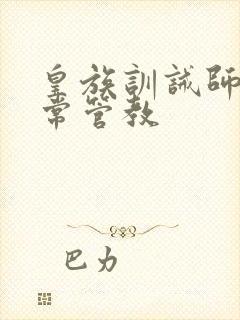 皇族訓誡師
常管教
巴力